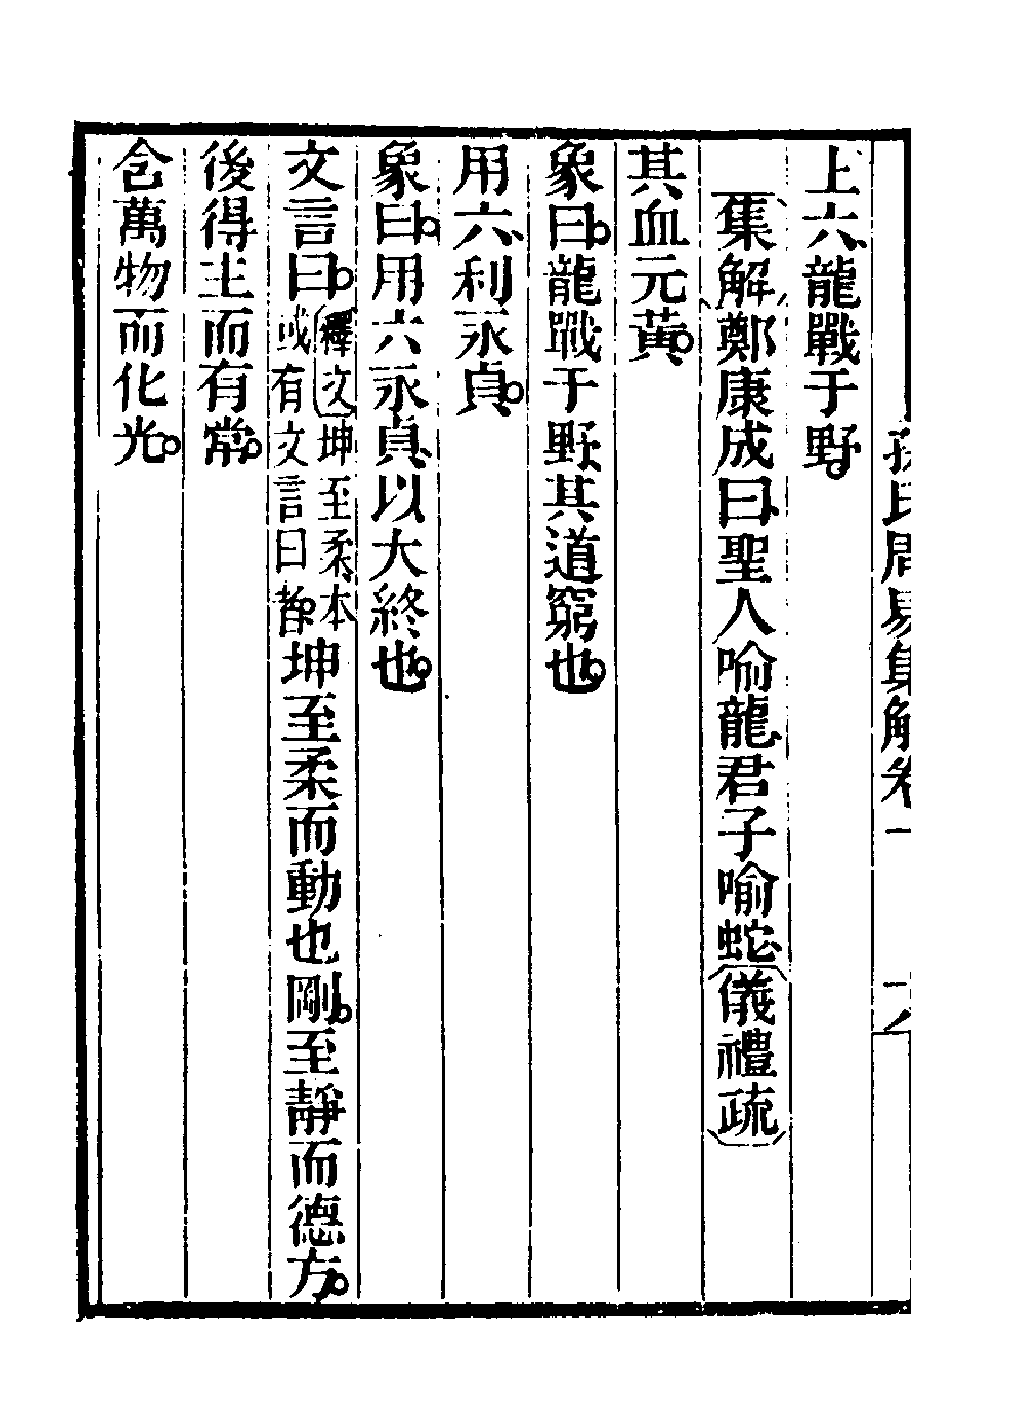 孫氏周易集解卷一
上六、龍戰于野。
〔集解〕鄭康成曰、聖人喻龍、君子喻蛇、〔儀禮疏〕
其血元黃。
象曰。龍戰于野、其道窮也。
用六、利永貞。
象曰。用六永貞、以大終也。
文言曰。〔釋文〕坤至柔、本或有文言曰者。坤至柔而動也剛。至靜而德方。
後得主而有常。
含萬物而化光。